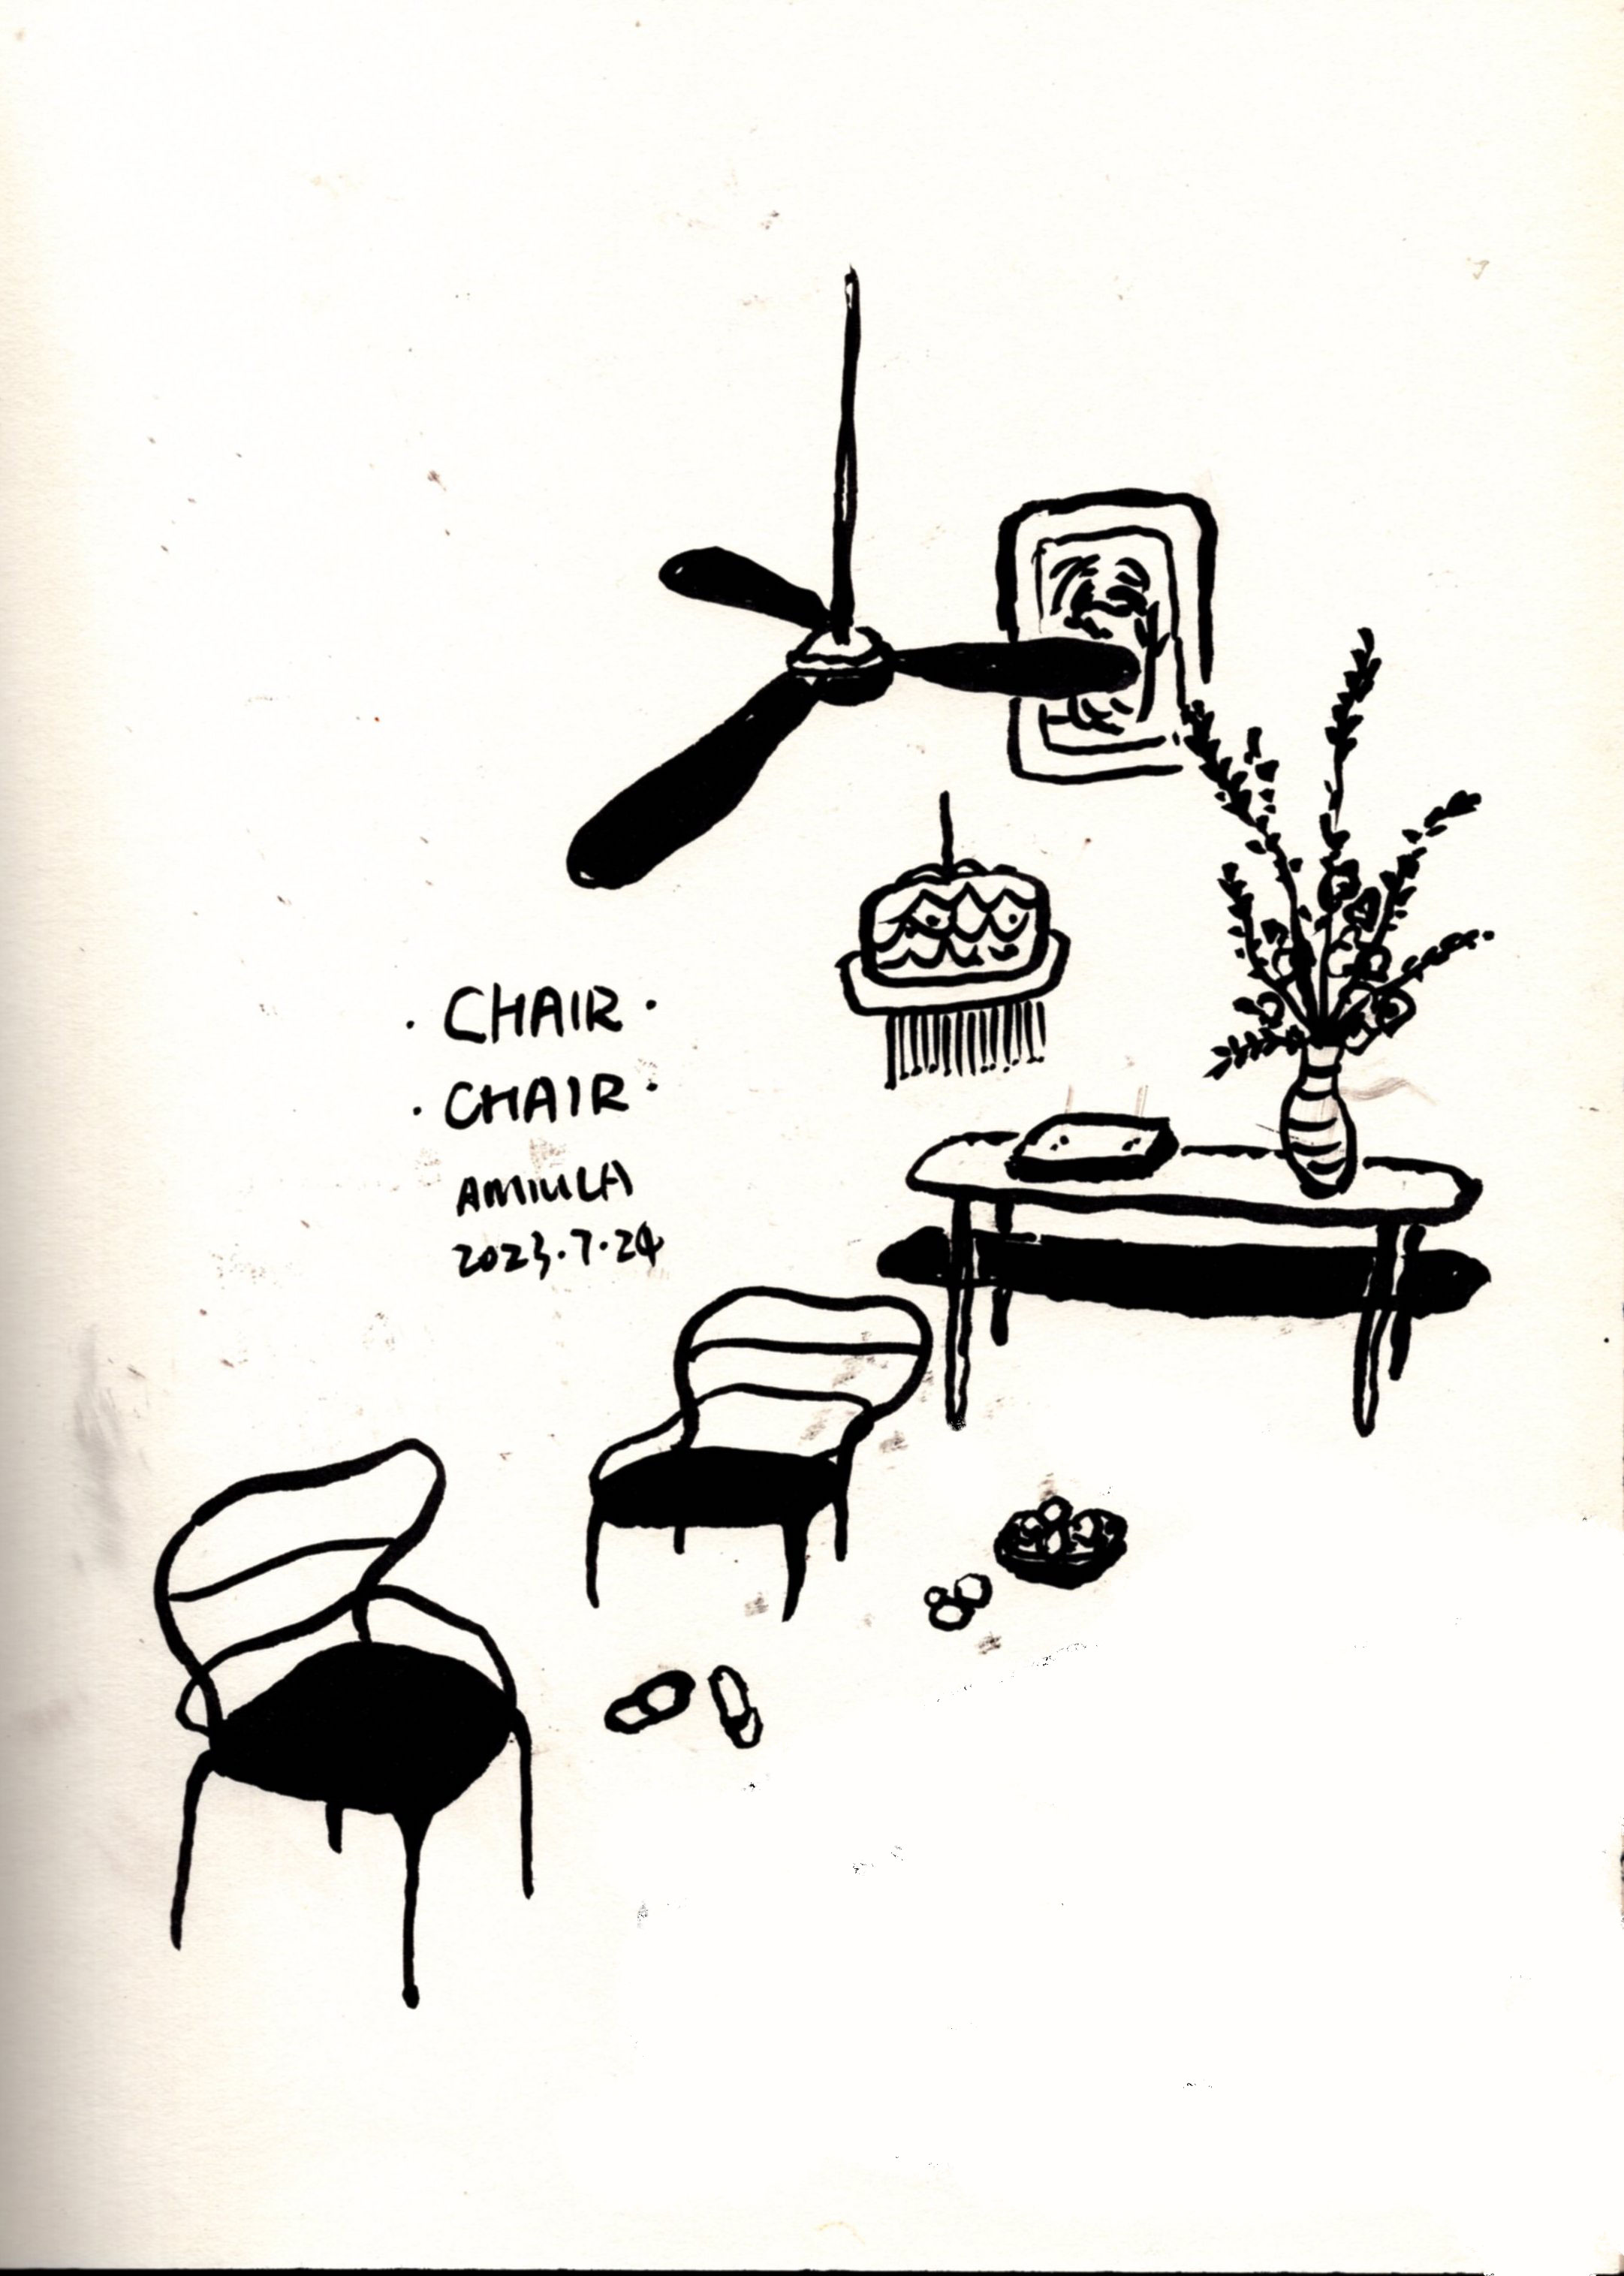 · CHAIR ·
· CHAIR ·
AMIULA
2023.7.24